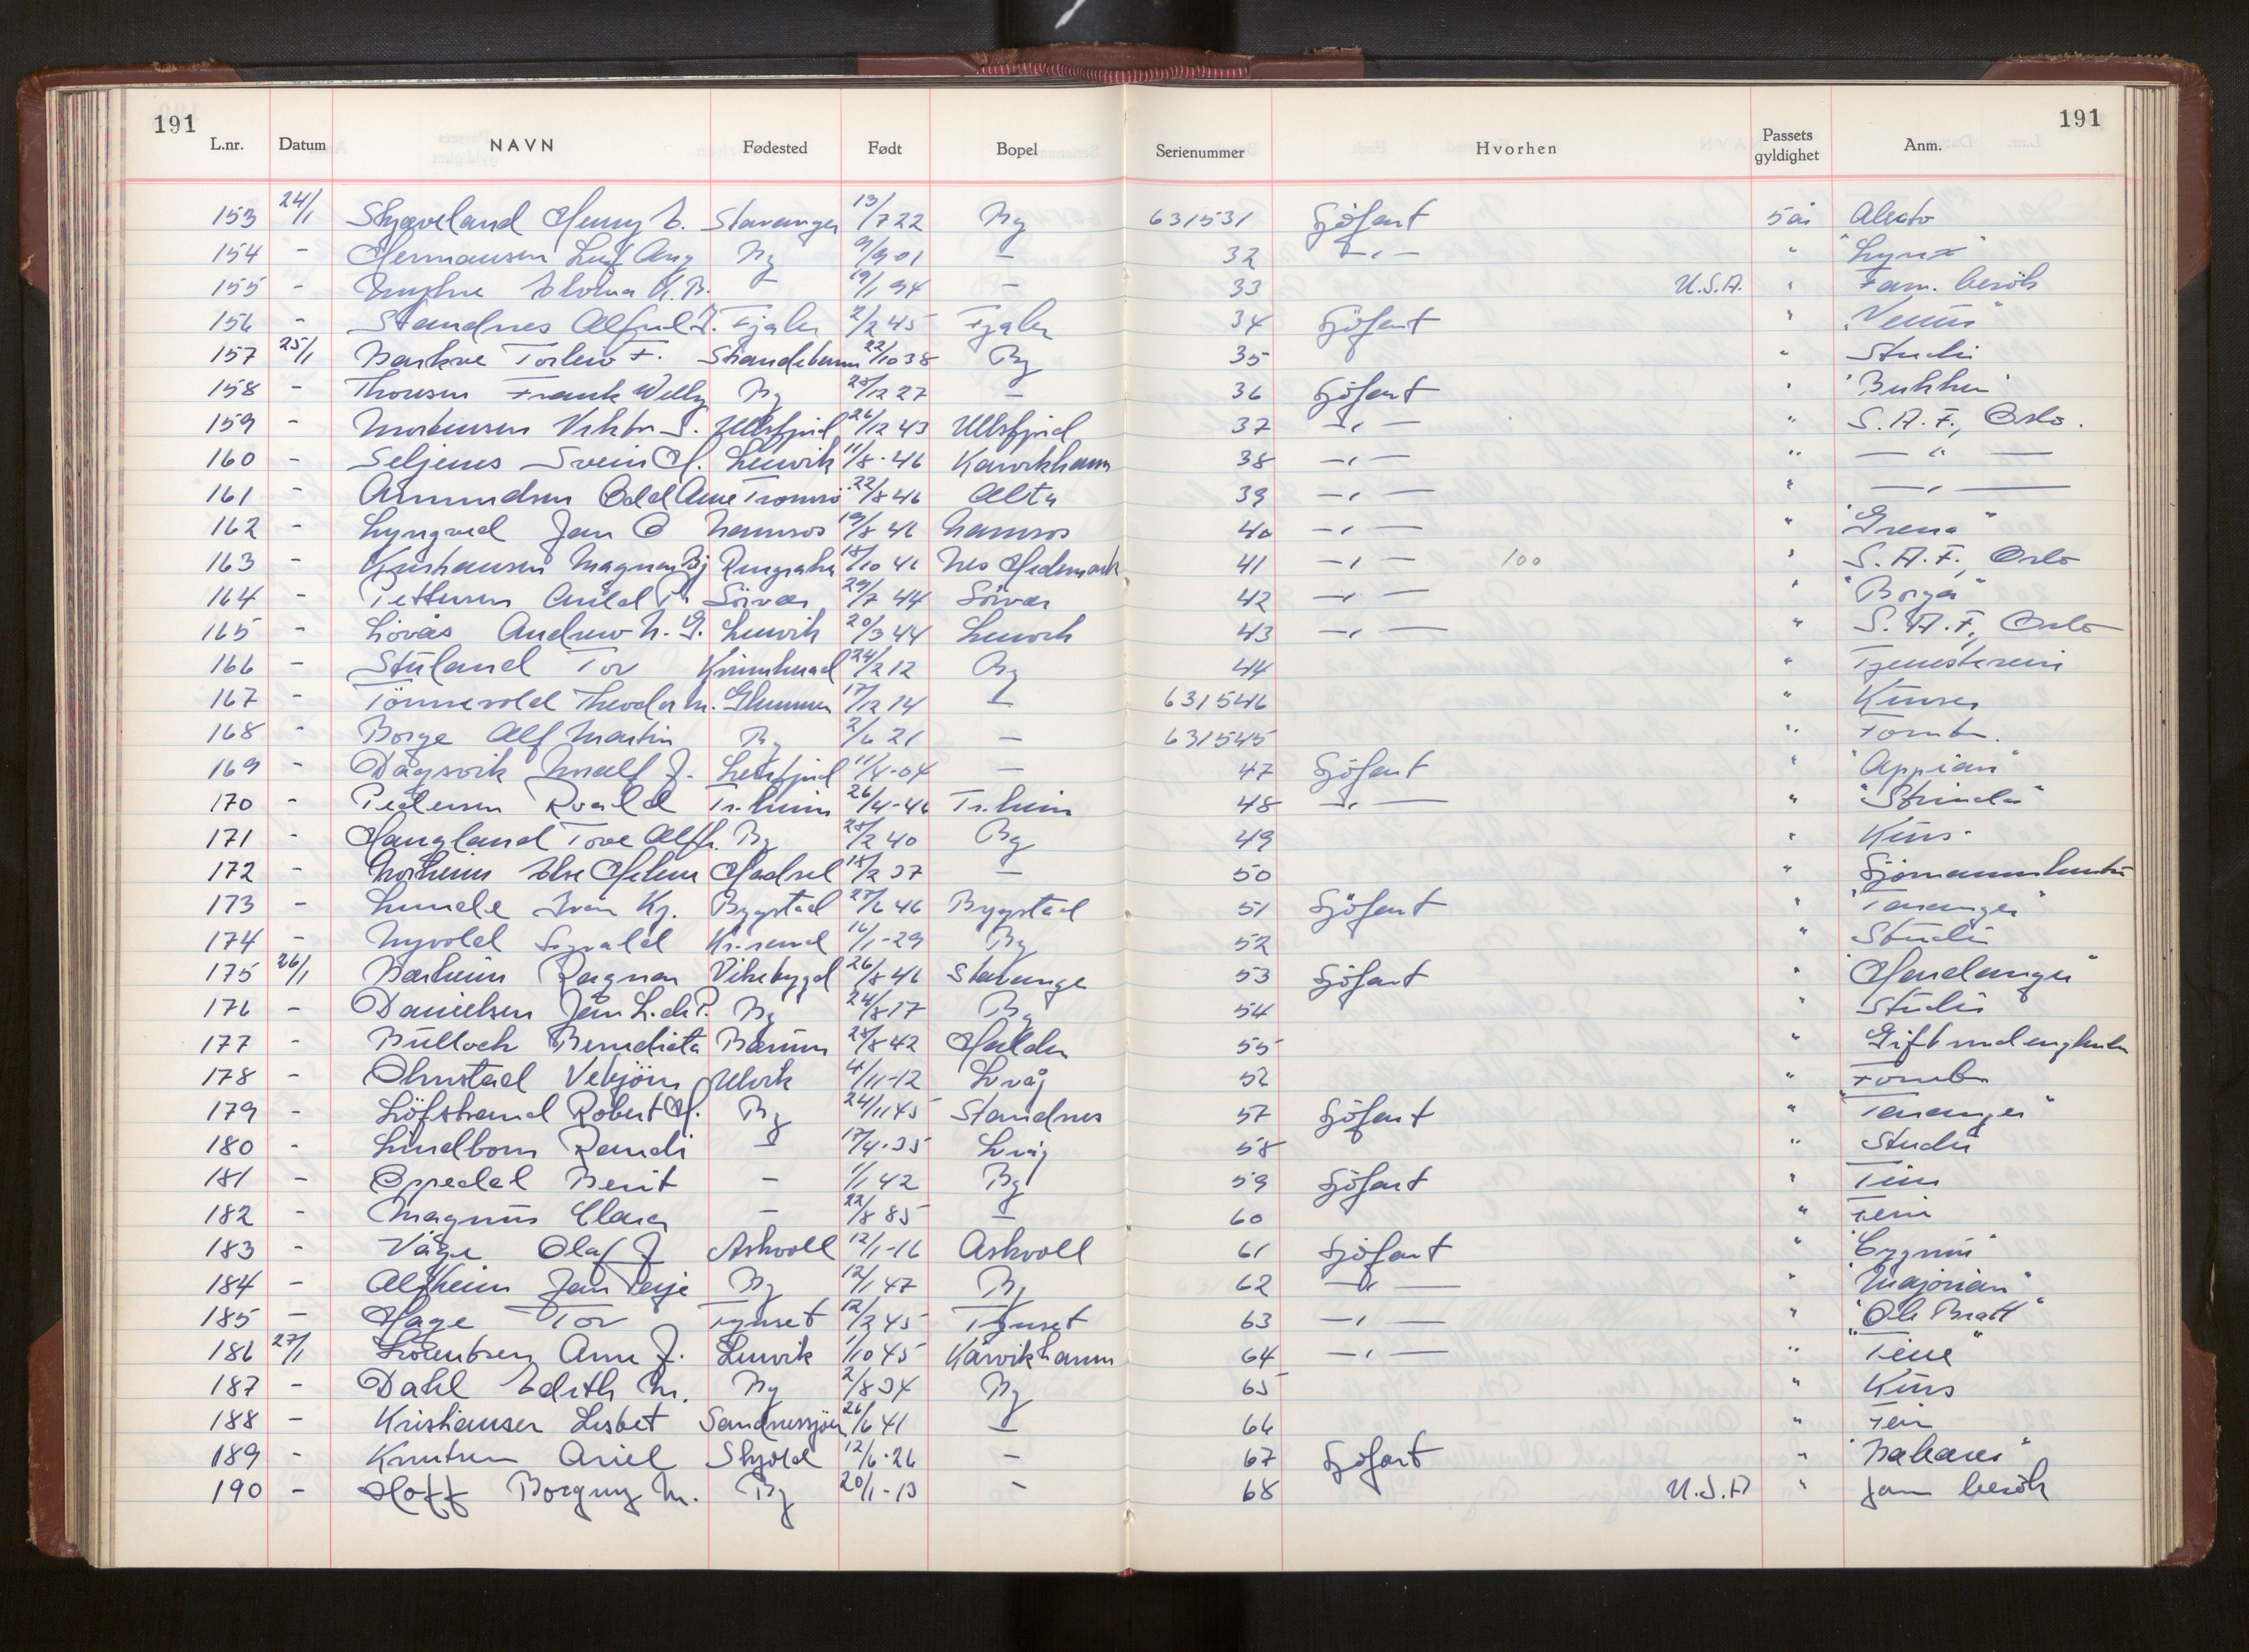 191 191
L.nr. Datum NAVN Fødested Født Bopel Serienummer Hvorhen Passets gyldighet Anm.
153 24/1 Skjæveland Henny E. Stavanger 13/7 22 Bg 631531 Sjöfart 5 år Alecto
154 - Hermansen Leif Aug Bg 9/9 01 - 32 -"- " "Lynx"
155 - K.B. - 19/1 94 - 33 U.S.A. " Fam. besök
156 - Standnes Alfred J. Fjaler 2/2 45 Fjaler 34 Sjöfart " "Venus"
157 25/1 Torleiv F. Strandebarm 22/10 38 Bg 35 " Studie
158 - Thorsen Frank Willy Bg 28/12 27 - 36 Sjöfart "
159 - Mortensen Viktor S. Ullsfjord 26/12 43 Ullsfjord 37 -"- " S.A.F., Oslo.
160 - Seljenes Svein H. Lenvik 11/8-46 Kårvikhamn 38 -"- " -"-
161 - Amundsen Odd Arne Tromsö 22/8 46 Alta 39 -"- " -"-
162 - Lyngved Jan O Namsos 19/8 46 Namsos 40 -"- " "Grena"
163 - Kristiansen Magnar Bj Ringsaker 18/10 41 Nes Hedemark 41 -"- 100 " S.A.F., Oslo
164 - Pettersen Arild Sörvær 29/7 44 Sörvær 42 -"- " "Borgå"
165 - Lövås Andrew N. G. Lenvik 20/3 44 Lenvik 43 -"- " S.A.F., Oslo
166 - Støland Tor Kvinnherad 24/2 12 Bg 44 " Tjenestereise
167 - Tönnevold Theodor M. Glemmen 17/12 14 - 631546 "
168 - Borge Alf Martin Bg 2/6 21 - 631545 " Fornbr.
169 - Dagsvik J. Leirfjord 11/4-04 - 47 Sjöfart " "Appian"
170 - Pedersen Roald Tr.heim 26/4-46 Tr.heim 48 -"- " "Strinda"
171 - Haugland Tove Alfh. Bg 28/2 40 Bg 49 " Kurs
172 - Norheim Else Helene Hadsel 18/2 37 - 50 "
173 - Lunde Ivar Kj. Bygstad 27/6 46 Bygstad 51 Sjöfart " "Taranger"
174 - Nyvold Sigvald Kr.sund 16/1-29 Bg 52 " Studie
175 26/1 Bærheim Ragnar Vikebygd 26/8 46 Stavange 53 Sjöfart " "Hardanger"
176 - Danielsen Jan L. Bg 24/8 17 Bg 54 " Studie
177 - Bullock Benedicta Bærum 28/8 42 Halden 55 "
178 - Olmstad Vebjörn Ulvik 4/11-12 L.våg 52 " Fornbr
179 - Löfstrand Robert H. Bg 24/11 45 Standnes 57 Sjöfart " "Taranger"
180 - Lindbom Randi - 17/4-35 L.våg 58 " Studie
181 - Oppedal Berit - 1/1 42 Bg 59 Sjöfart "
182 - Magnus Clara - 22/8 85 - 60 " Ferie
183 - Våge Olaf J Askvoll 12/1-16 Askvoll 61 Sjöfart " "Cygnus"
184 - Alfheim Jan Terje Bg 12/1 47 Bg 62 -"- " "Majorian"
185 - Hage Tor Tynset 12/2 45 Tynset 63 -"- " "Ole Bratt"
186 27/1 Lorentsen Arne J. Lenvik 1/10 45 Kårvikhamn 64 -"- "
187 - Dahl Edith M. Bg 2/8 34 Bg 65 " Kurs
188 - Kristiansen Lisbet Sandnessjöen 26/6 41 - 66 " Ferie
189 - Knutsen Ariel Skjold 12/6-26 - 67 Sjöfart "
190 - Hoff Borgny M. Bg 20/1-13 - 68 U.S.A " fam besök